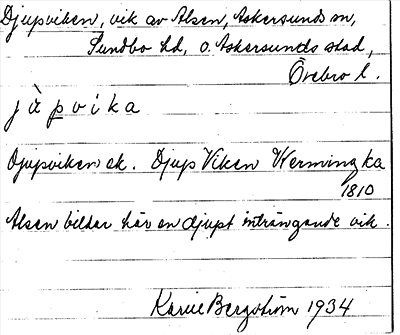 Djupviken, vik av Alsen, Askersunds sn,
Sundbo hd, o. Askersunds stad,
Örebro l.
jùpvika
Djupviken ek. Djup Viken Wermingka
1810
Alsen bildar här en djupt inträngande vik.
Karin Bergström 1934